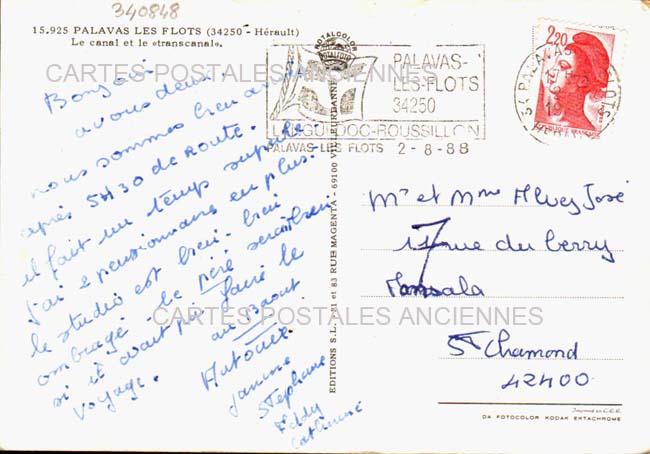 340848
15.925 PALAVAS LES FLOTS (34250 - Hérault)
Le canal et le «transcanal».
CARTES POSTALES ANCIENNES
Bonjour
a vous deux.
nous sommes bien
après 5H30 de Route.
il fait un temps superbe
j'ai 2 pensionnaire en plus.
le studio est bien. bien
ombragé. le pépé
si il avait pu faire le
voyage.
au 3 aout
Antoine
Janine
Stephane
Eddy
Catherine
EDITIONS S.L. 81 et 83 RUE MAGENTA - 69100 VILLEURBANNE
ROYALCOLOR
PALAVAS-
LES-FLOTS
34250
LANGUEDOC-ROUSSILLON
PALAVAS LES FLOTS 2-8-88
2,20
34 PALAVAS LES FLOTS
17H
HERAULT
Mr et Mme Alves José
17 rue du berry
Fonsala
St Chamond
42400
CARTES POSTALES ANCIENNES
Imprimé en C.E.E.
DA FOTOCOLOR KODAK EKTACHROME